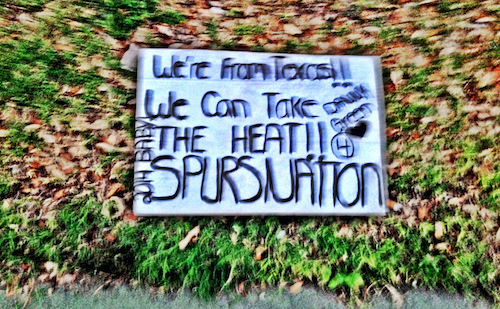 We're from Texas!!
We Can Take
DANNY
Green
THE HEAT!!
4
SPURSNATION
BABY